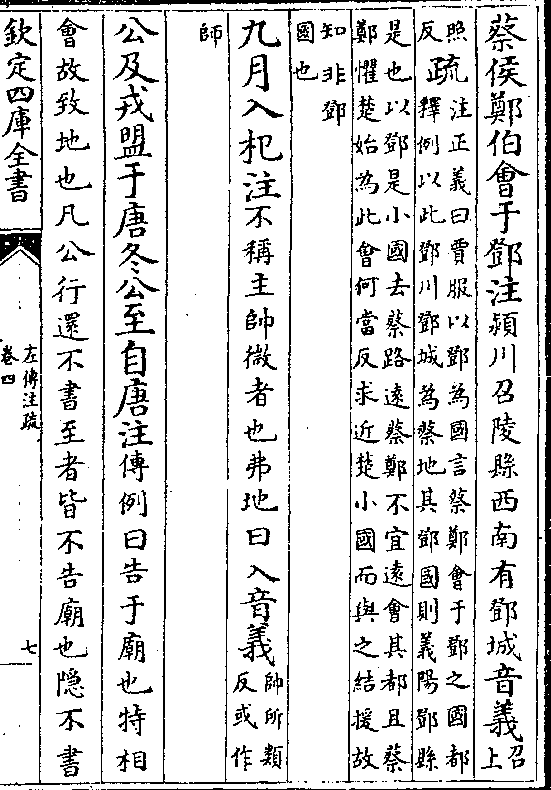 蔡侯鄭伯會于鄧注潁川召陵縣西南有鄧城音義召上
照反疏注正義曰賈服以鄧為國言蔡鄭會于鄧之國都
釋例以此鄧川鄧城為蔡地其鄧國則義陽鄧縣
是也以鄧是小國去蔡路遠蔡鄭不宜遠會其都且蔡
鄭懼楚始為此會何當反求近楚小國而與之結援故
知非鄧
國也
九月入杞注不稱主帥微者也弗地曰入音義帥所類
反或作
師
公及戎盟于唐冬公至自唐注傳例曰告于廟也特相
會故致地也凡公行還不書至者皆不告廟也隠不書
欽定四庫全書
左傳注疏
卷四
七